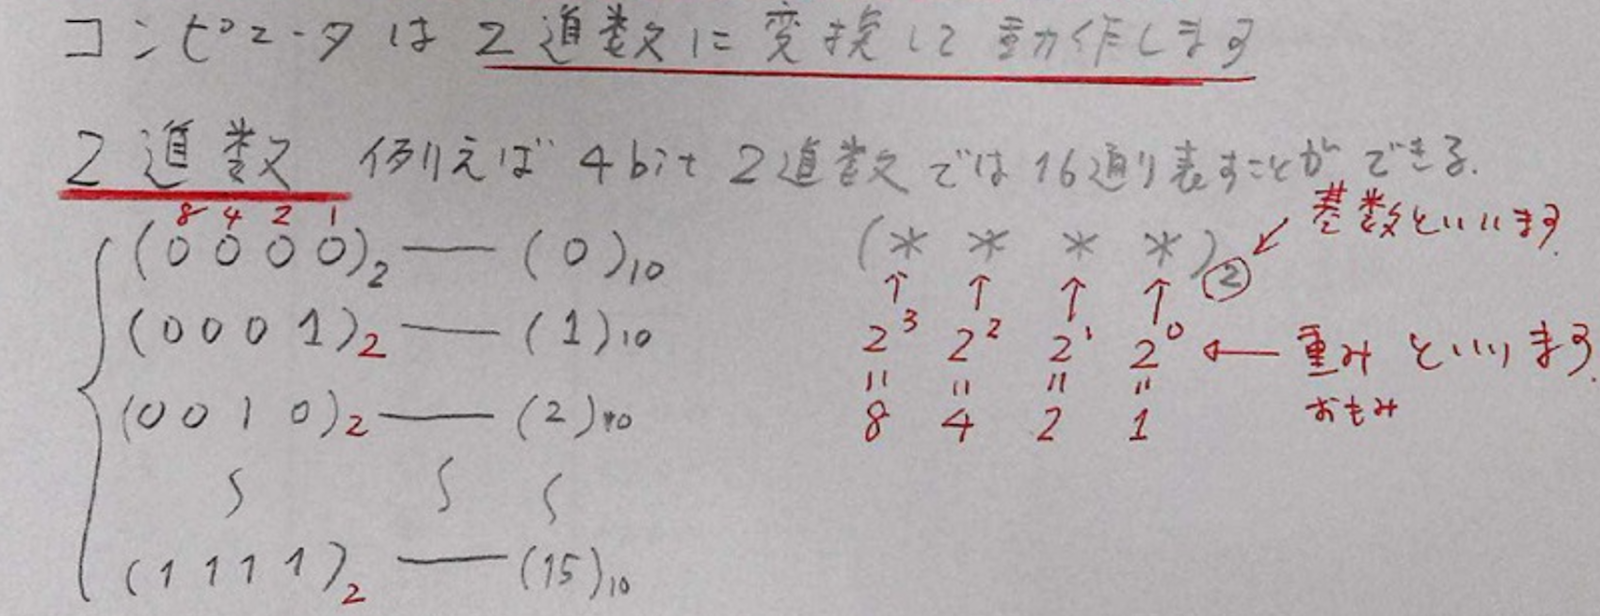 コンピュータは2進数に変換して動作します
2進数 例えば 4bit 2進数では16通り表すことができる.
8 4 2 1
(0 0 0 0)2 — (0)10
(0 0 0 1)2 — (1)10
(0 0 1 0)2 — (2)10
(1 1 1 1)2 — (15)10
(* * * *)2 ← 基数といいます
↑ ↑ ↑ ↑
2³ 2² 2¹ 2⁰ ← 重みといいます.
= = = =
8 4 2 1
おもみ